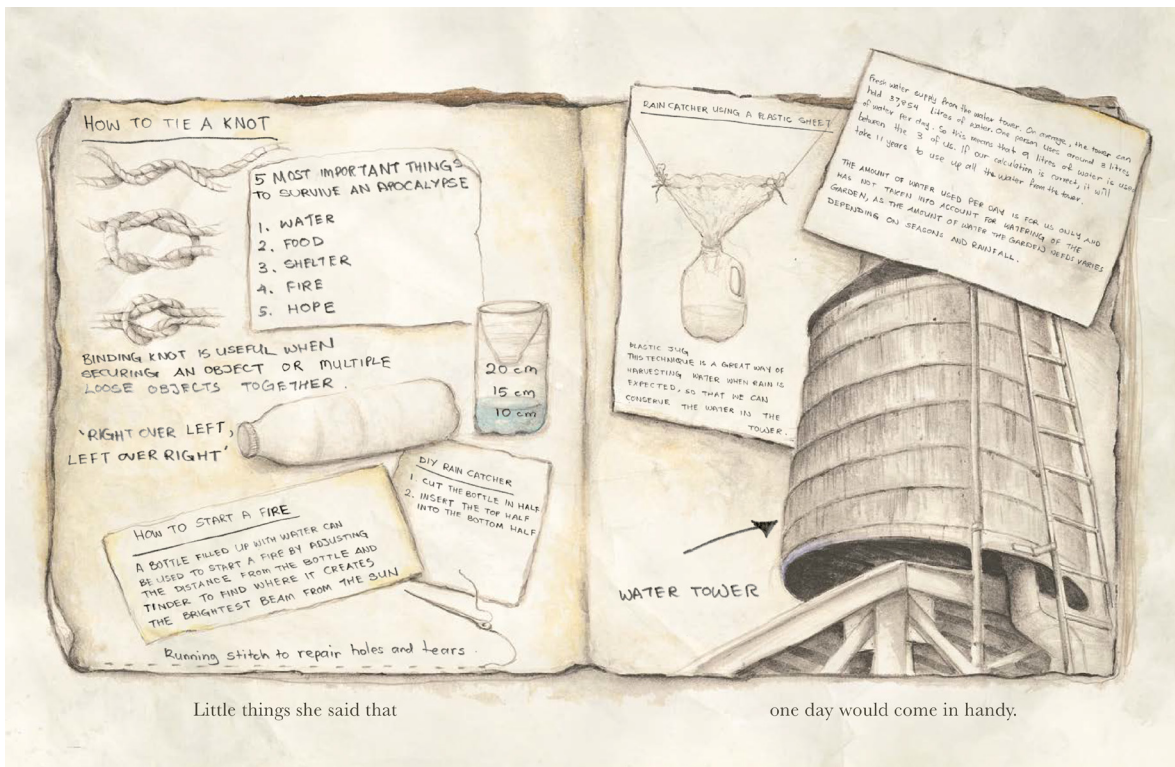 HOW TO TIE A KNOT
5 MOST IMPORTANT THINGS
TO SURVIVE AN APOCALYPSE
1. WATER
2. FOOD
3. SHELTER
4. FIRE
5. HOPE
BINDING KNOT IS USEFUL WHEN
SECURING AN OBJECT OR MULTIPLE
LOOSE OBJECTS TOGETHER.
'RIGHT OVER LEFT,
LEFT OVER RIGHT'
20 cm
15 cm
10 cm
DIY RAIN CATCHER
1. CUT THE BOTTLE IN HALF
2. INSERT THE TOP HALF
INTO THE BOTTOM HALF
HOW TO START A FIRE
A BOTTLE FILLED UP WITH WATER CAN
BE USED TO START A FIRE BY ADJUSTING
THE DISTANCE FROM THE BOTTLE AND
TINDER TO FIND WHERE IT CREATES
THE BRIGHTEST BEAM FROM THE SUN
Running stitch to repair holes and tears.
Little things she said that
RAIN CATCHER USING A PLASTIC SHEET
PLASTIC JUG
THIS TECHNIQUE IS A GREAT WAY OF
HARVESTING WATER WHEN RAIN IS
EXPECTED, SO THAT WE CAN
CONSERVE THE WATER IN THE
TOWER.
Fresh water supply from the water tower. On average, the tower can
hold 37854 litres of water. One person uses around 3 litres
of water per day. So this means that 9 litres of water is used
between the 3 of us. If our calculation is correct, it will
take 11 years to use up all the water from the tower.
THE AMOUNT OF WATER USED PER DAY IS FOR US ONLY AND
HAS NOT TAKEN INTO ACCOUNT FOR WATERING OF THE
GARDEN, AS THE AMOUNT OF WATER THE GARDEN NEEDS VARIES
DEPENDING ON SEASONS AND RAINFALL.
WATER TOWER
one day would come in handy.